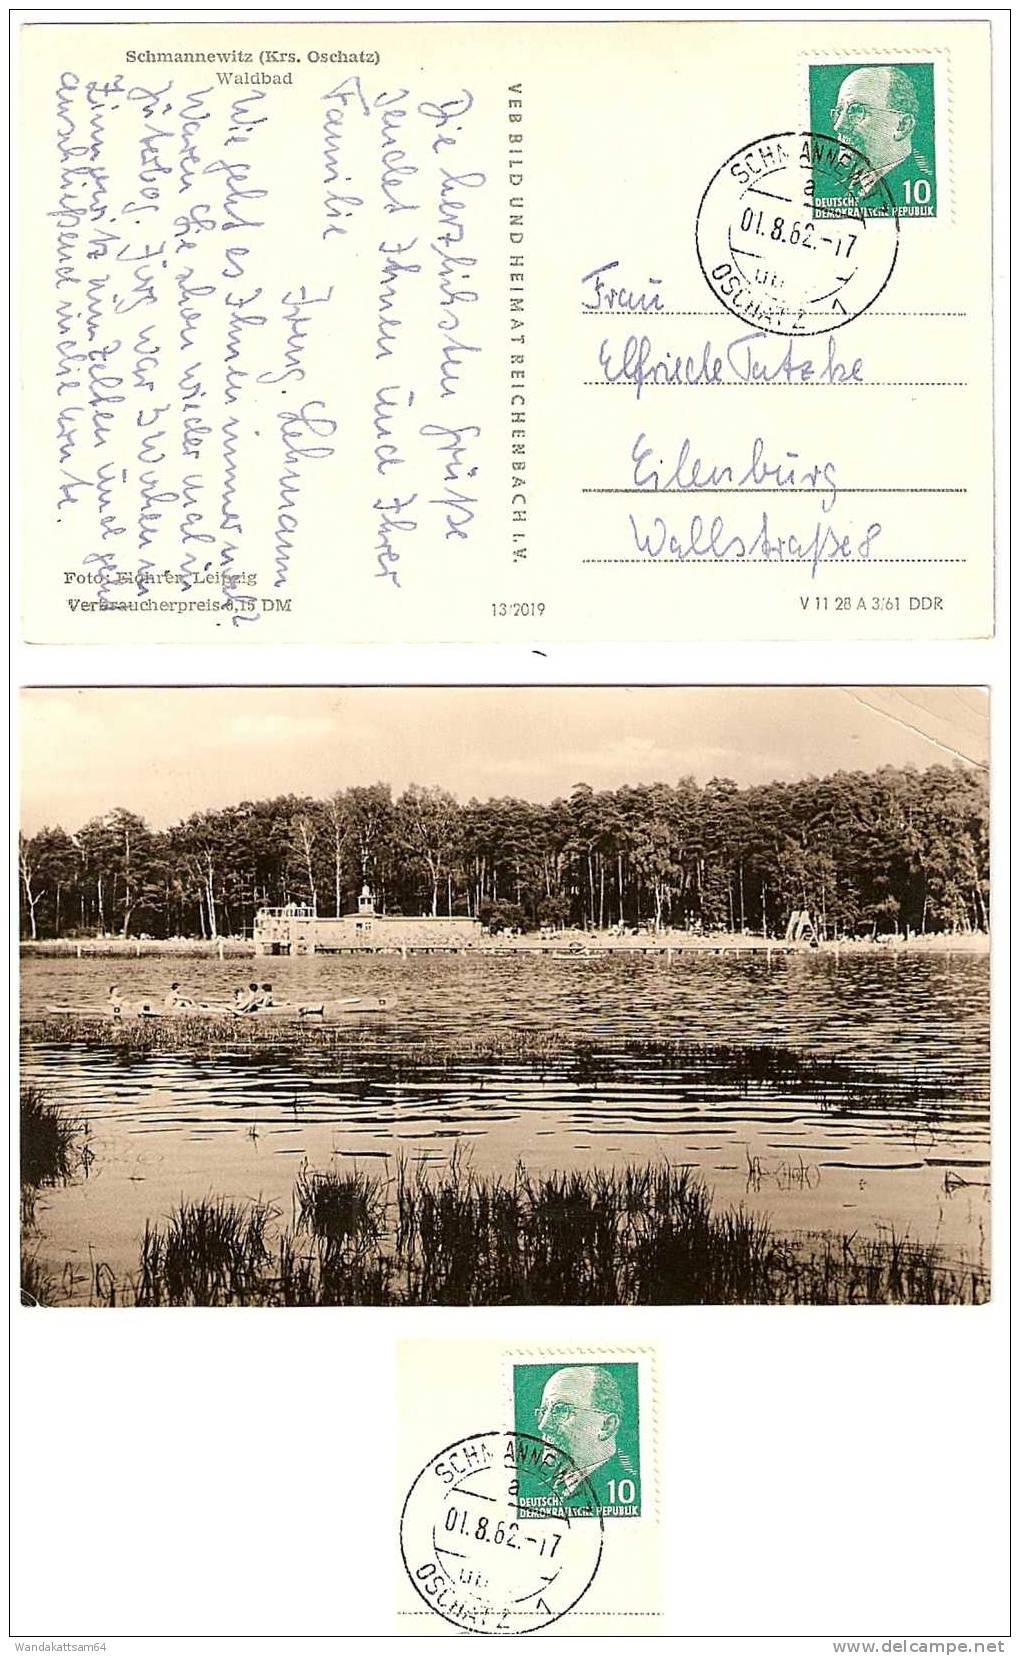 Schmannewitz (Krs. Oschatz)
Waldbad
Die herzlichsten Grüße
sendet Ihnen und Ihrer
Familie
Irmg. Lehmann
Wie geht es Ihnen immer mal?
Waren Sie schon wieder mal in
Jüterbog. Jürg war 3 Wochen in
zum Zelten und
anschließend in die
Foto: Leipzig
Verbraucherpreis 0,15 DM
VEB BILD UND HEIMAT REICHENBACH I.V.
13/2019
DEUTSCHE
DEMOKRATISCHE REPUBLIK
10
SCHMANNEWITZ
a
01.8.62.-17
OSCHATZ 1
Frau
Elfriede Tatzke
Eilenburg
Wallstraße 8
V 11 28 A 3/61 DDR
DEUTSCHE
DEMOKRATISCHE REPUBLIK
10
SCHMANNEWITZ
a
01.8.62.-17
OSCHATZ 1
Wandakattsam64
www.delcampe.net